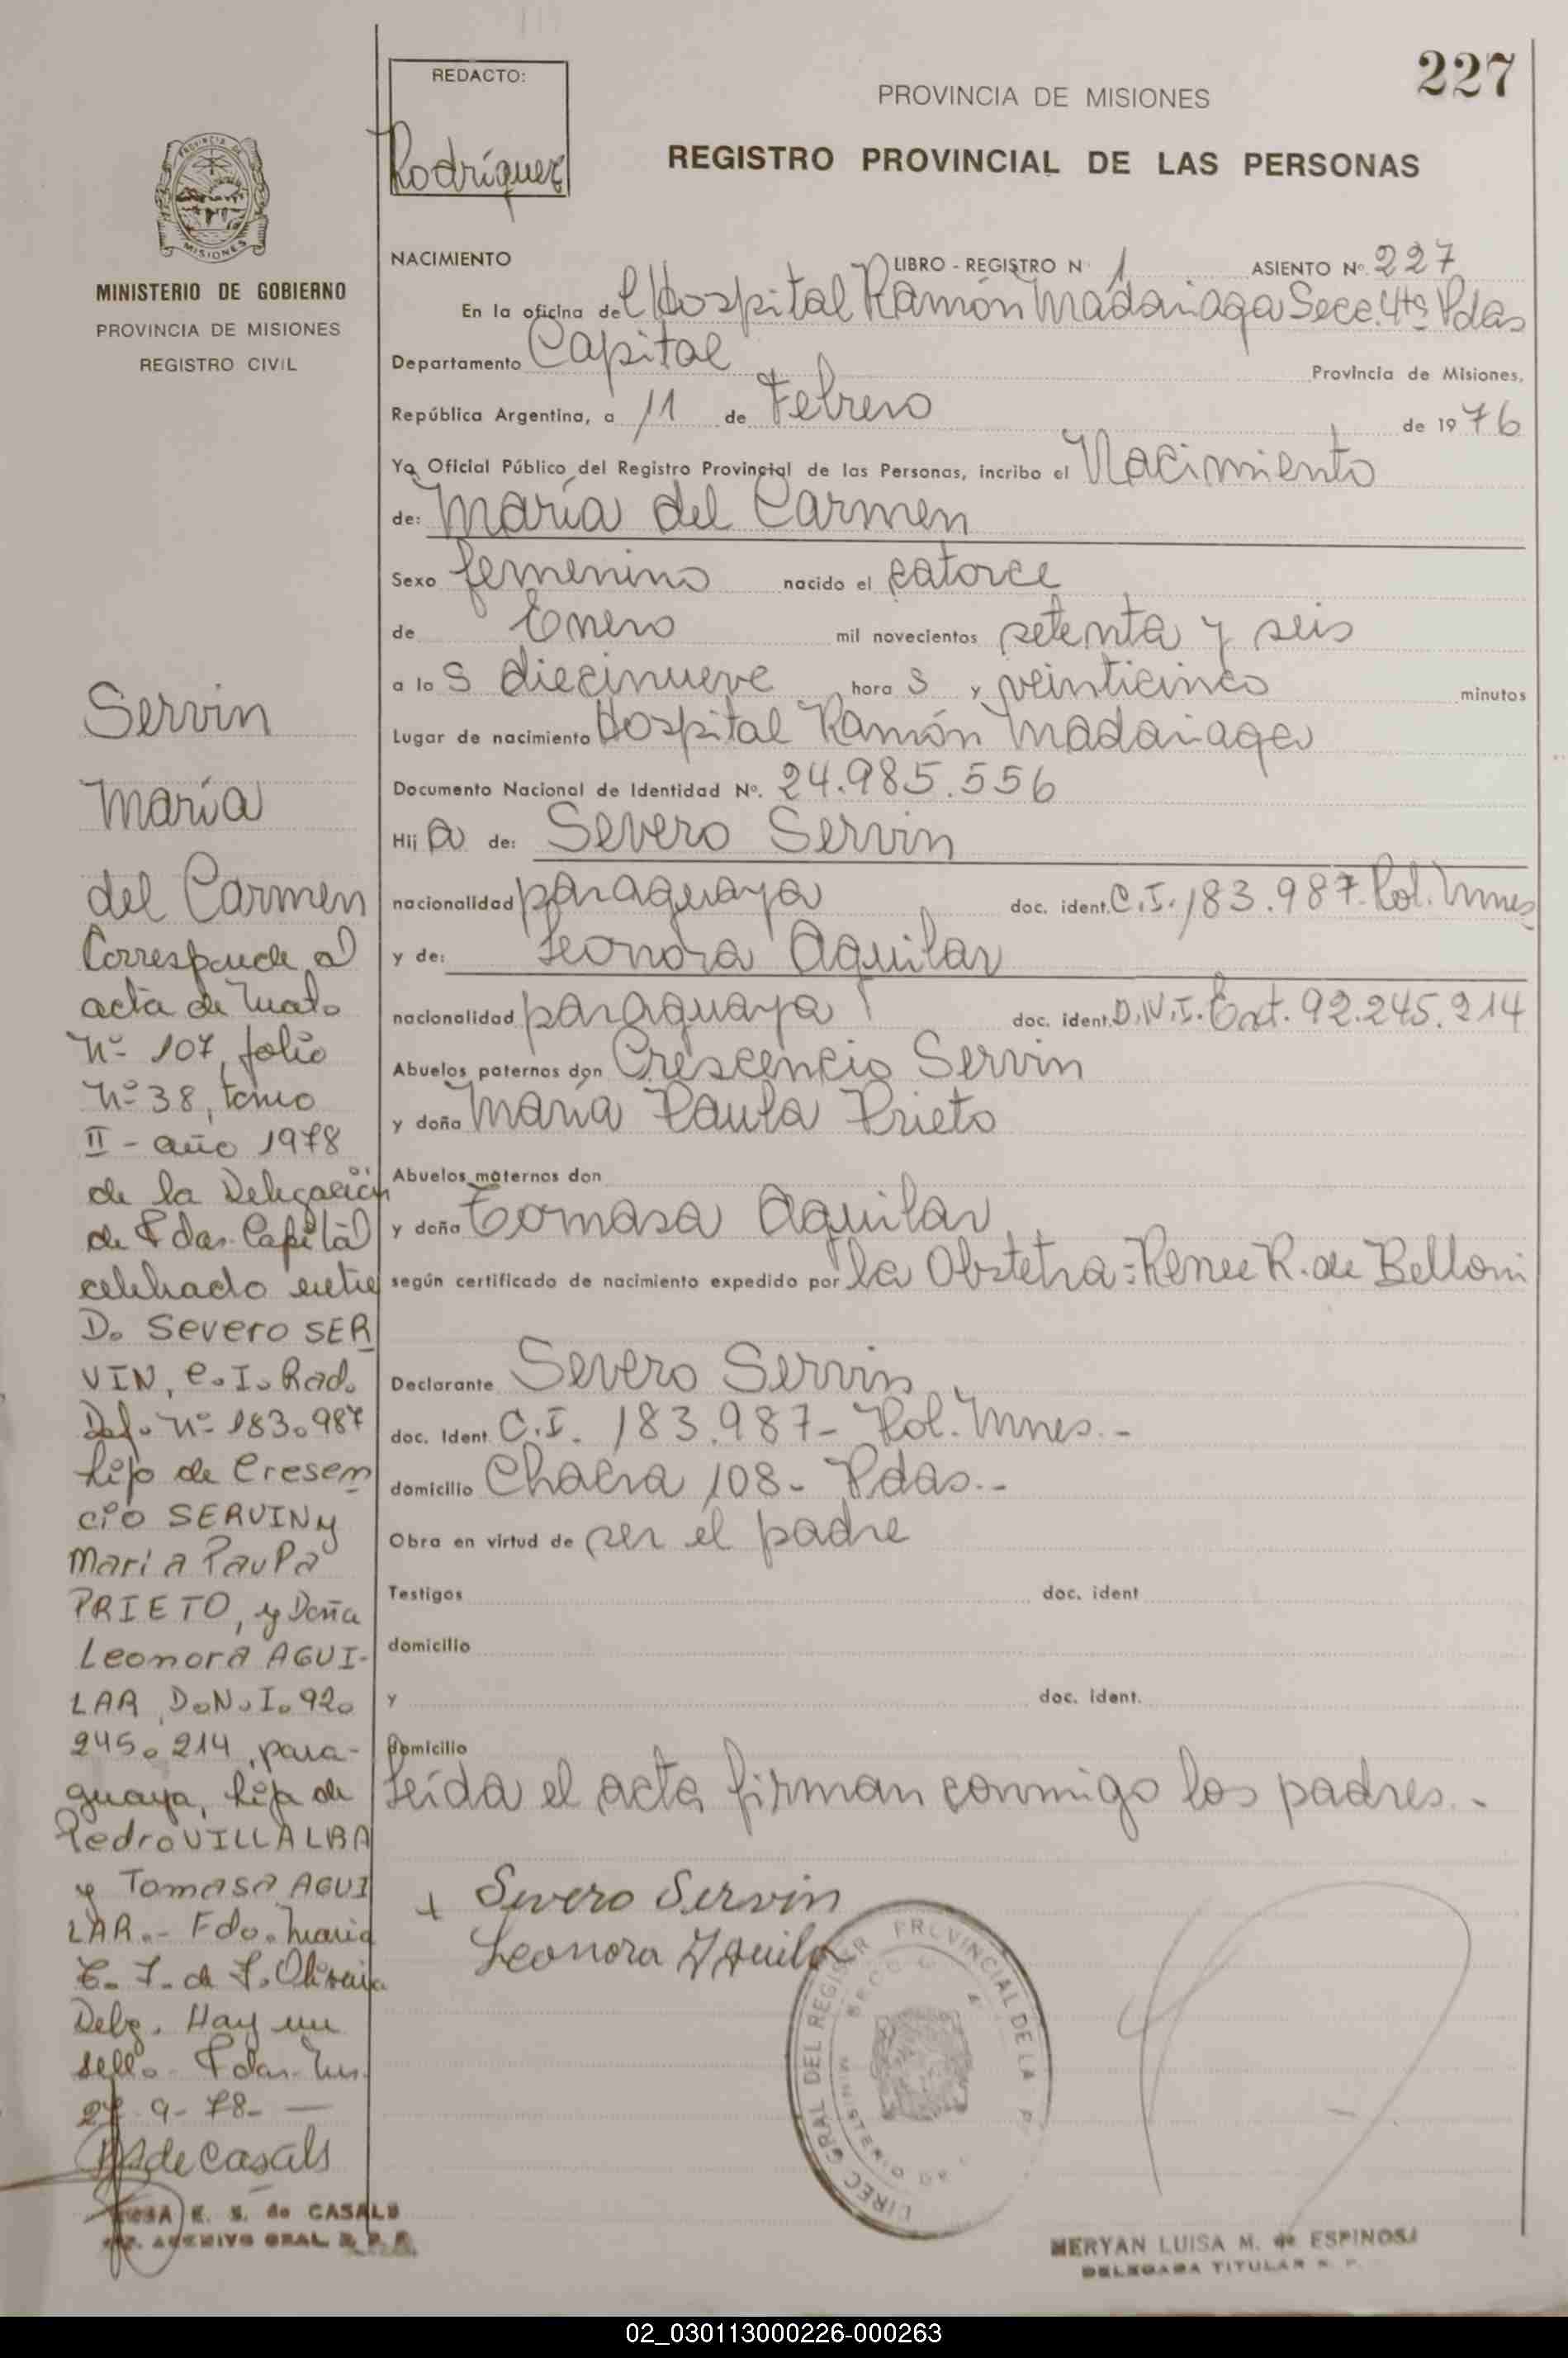 227
REDACTO:
Rodríguez
PROVINCIA DE MISIONES
REGISTRO PROVINCIAL DE LAS PERSONAS
MISIONES
MINISTERIO DE GOBIERNO
PROVINCIA DE MISIONES
REGISTRO CIVIL
NACIMIENTO LIBRO - REGISTRO N 1 ASIENTO Nº 227
En la oficina del Hospital Ramón Madariaga Secc. 4ta Pdas
Departamento Capital Provincia de Misiones,
República Argentina, a 11 de Febrero de 1976
Yo Oficial Público del Registro Provincial de las Personas, incribo el Nacimiento
de: María del Carmen
Sexo femenino nacido el catorce
de Enero mil novecientos setenta y seis
a las diecinueve horas y veinticinco minutos
Lugar de nacimiento Hospital Ramón Madariaga
Documento Nacional de Identidad Nº. 24.985.556
Hija de: Severo Servin
nacionalidad paraguaya doc. ident. C.I. 183.987-Pol. Mnes
y de: Leonora Aguilar
nacionalidad paraguaya doc. ident. D.N.I. Ext. 92.245.214
Abuelos paternos don Crescencio Servin
y doña María Paula Prieto
Abuelos maternos don
y doña Tomasa Aguilar
según certificado de nacimiento expedido por la Obstetra=Renee R. de Belloni
Declarante Severo Servin
doc. Ident. C.I. 183.987- Pol. Mnes.-
domicilio Chacra 108- Pdas.-
Obra en virtud de ser el padre
Testigos doc. ident
domicilio
y doc. ident.
domicilio
Leída el acta firman conmigo los padres.-
+ Severo Servin
Leonora Aguilar
Servin
María
del Carmen
Corresponde al
acta de Mat.
Nº 107, folio
Nº 38, tomo
II - año 1978
de la Delegación
de Pdas. Capital
celebrado entre
D. Severo SER
VIN, C.I. Rad.
Def. Nº 183.987
hijo de Cresen
cio SERVIN y
Maria Paula
PRIETO, y Doña
Leonora AGUI-
LAR D.N.I. 92.
245.214, para-
guaya, hija de
Pedro VILLALBA
y Tomasa AGUI
LAR.- Fdo. Maria
de Oliveira
Deleg. Hay un
sello. Pdas. Mis.
27-9-78-
de Casals
ROSA E. S. de CASALS
ARCHIVO GRAL R. P. P.
DIREC GRAL DEL REGISTR PROVINCIAL DE LA P
MINISTERIO DE
MERYAN LUISA M. de ESPINOSA
DELEGADA TITULAR R. P.
02_030113000226-000263